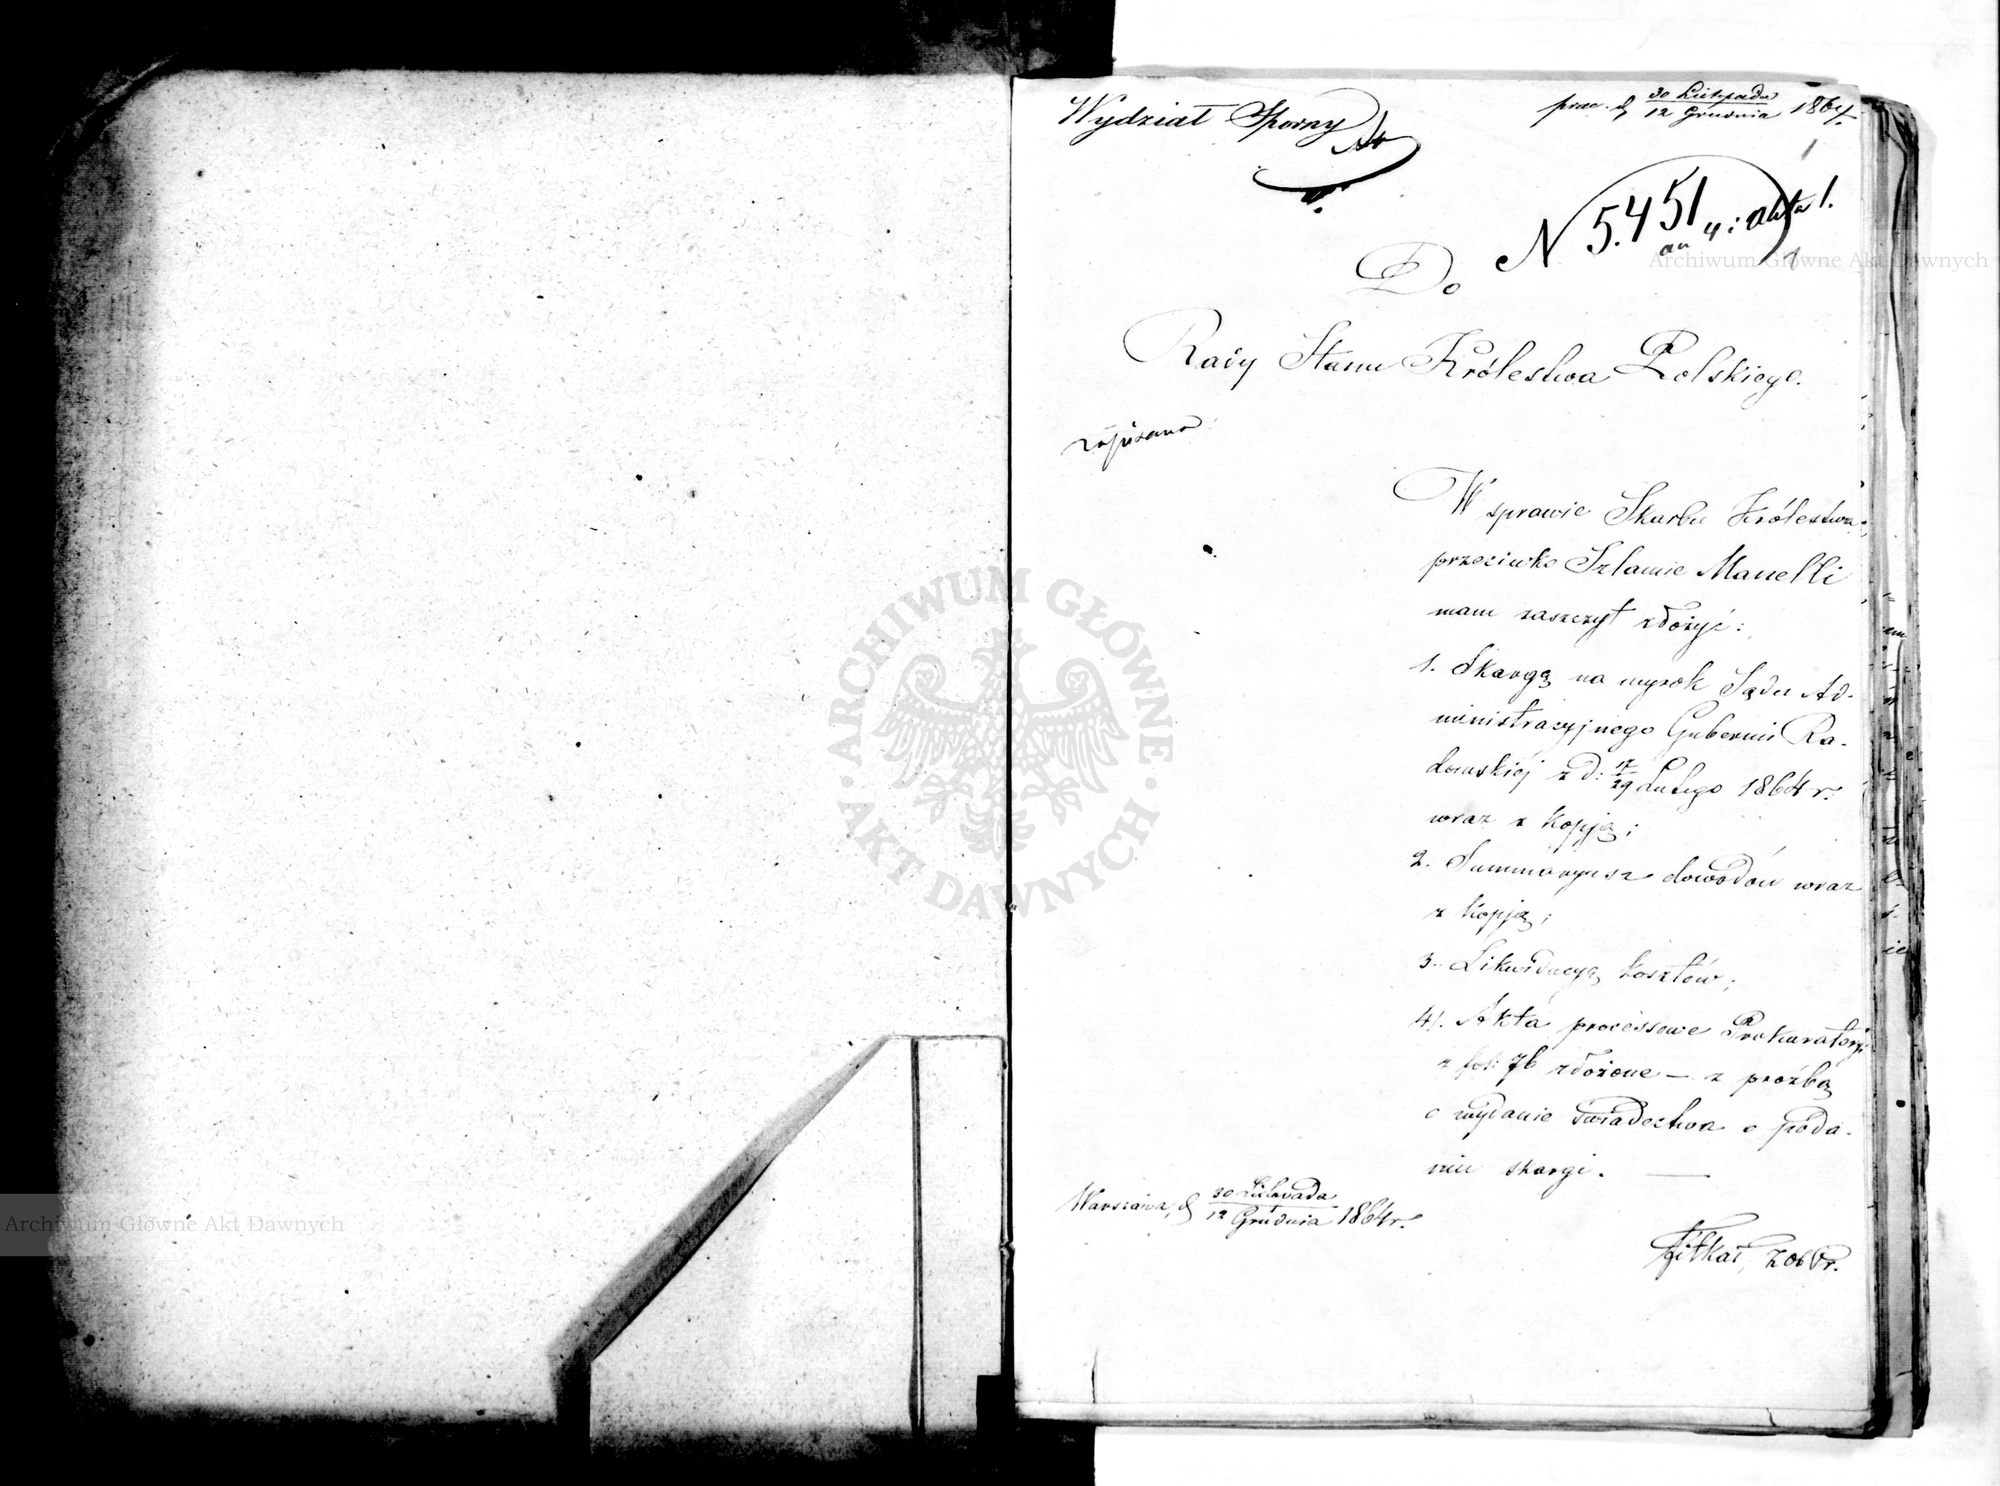 Wydział Sporny
prez. d. 30 Listopada / 12 Grudnia 1864.
N 5.451 akta 1.
Do
Rady Stanu Królestwa Polskiego.
zapisano
W sprawie Skarbu Królestwa
przeciwko Szlamie Manelli
mam zaszczyt złożyć:
1. Skargę na wyrok Sądu Ad-
ministracyjnego Gubernii Ra-
domskiéj z d: 17/29 Lutego 1864 r.
wraz z kopją;
2. Summaryusz dowodów wraz
z kopją;
3. Likwidacyą kosztów;
4). Akta processowe Prokuratoryi
z fol: 76 złożone — z prośbą
o wydanie świadectwa o poda-
niu skargi. —
Warszawa, d. 30 Listopada / 12 Grudnia 1864 r.
ARCHIWUM GŁÓWNE · AKT DAWNYCH ·
Archiwum Główne Akt Dawnych
Archiwum Główne Akt Dawnych